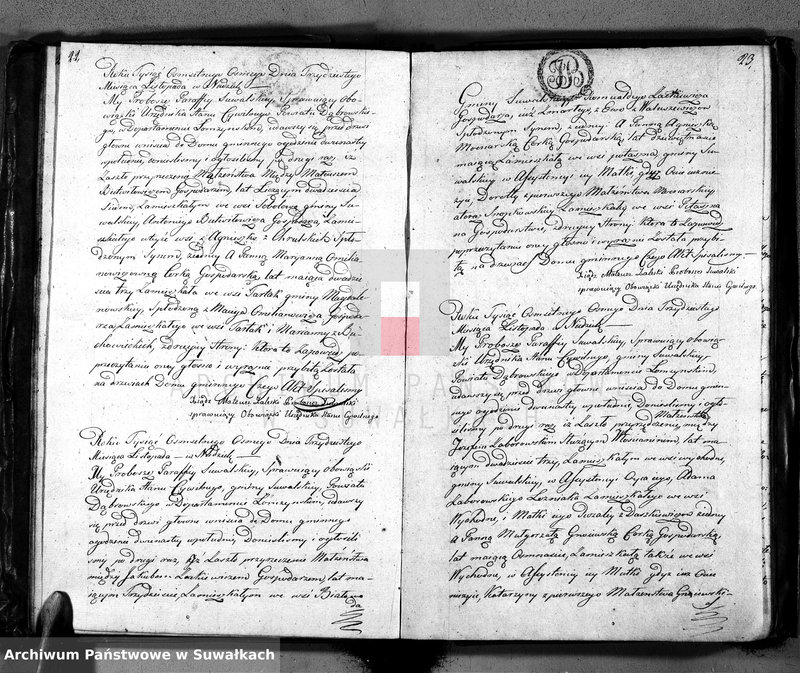 22
Roku Tysiąć Osmsetnego Osmego Dnia Trzydziestego
Miesiąca Listopada w Niedzielę
My Proboszcz Paraffij Suwalskiey, Sprawuiący Obo-
wiązki Urzędnika Stanu Cywilnego Powiatu Dąbrowskie-
go, w Departamencie Łomzynskim, udawszy się przed drzwi
głowne wniscia do Domu gminnego o godzinie dwunastey
w południe donieslismy i ogłosilismy po drugi raz iz
zaszło przyrzeczenie Małżenstwa Między Mateuszem
Butwiłowiczem Gospodarzem, lat Liczącym dwadziescia
Siedm, Zamieszkałym we wsi Sobolowie gminy Su-
walskiey, Antoniego Butwiłowicza Gospodarza, Zamie-
szkałego w teyże wsi i Agnieszki z Chrulskich Spło-
dzonym Synem, ziedney A Panną Maryanną Omilia-
nowiczowną Corką Gospodarską, lat maiącą dwadzie-
scia trzy Zamieszkałą we wsi Tartak gminy Magdale-
nowskiey, Spłodzoną z Macieja Omilianowicza Gospoda-
rza Zamieszkałego we wsi Tartak i Maryanny z Bu-
chowieckich, z drugiey Strony: która to Zapowiedz po
przeczytaniu oney głosno i wyraznie przybitą Została
na drzwiach Domu gminnego Czego Akt Spisalismy
Xiądz Mateusz Zalski Proboszcz Suwalski
sprawuiący Obowiązki Urzędnika Stanu Cywilnego
Roku Tysiąć Osmsetnego Osmego Dnia Trzydziestego
Miesiąca Listopada w Niedzielę
My Proboszcz Paraffij Suwalskiey, Sprawuiący obowiązki
Urzędnika Stanu Cywilnego, gminy Suwalskiey, Powiatu
Dąbrowskiego w Departamencie Łomzynskim, udawszy
się przed drzwi głowne wniscia do Domu gminnego
o godzinie dwunastey w południe, Donieslismy i ogłosili-
smy po drugi raz, iż Zaszło przyrzeczenie Małżenstwa
między Jakubem Laskiewiczem Gospodarzem, lat ma-
iącym Trzydziescie, Zamieszkałym we wsi
23
Gminy Suwalskiey Romualdego Laskiewicza
Gospodarza, iuż zmarłego, z Ewą z Matuszewiczow
Spłodzonym Synem, z iedney. A Panną Agnieszką
Mocnarską Corką Gospodarską, lat dziewiętnascie
maiącą Zamieszkałą we wsi gminy Su-
walskiey w Assystencyi iey Matki gdyż Ociec
Doroty z pierwszego Małżenstwa Mocnarskiey
a teraz Zamieszkałey we wsi
na Gospodarstwie, z drugiey Strony: która to Zapowiedz
po przeczytaniu oney głosno i wyraznie Została przybi-
tą na drzwiach Domu gminnego Czego Akt Spisalismy
Xiądz Mateusz Zalski Proboszcz Suwalski
sprawuiący Obowiązki Urzędnika Stanu Cywilnego
Roku Tysiąć Osmsetnego Osmego Dnia Trzydziestego
Miesiąca Listopada w Niedzielę
My Proboszcz Paraffij Suwalskiey, Sprawuiący obowią-
zki Urzędnika Stanu Cywilnego, gminy Suwalskiey,
Powiatu Dąbrowskiego w Departamencie Łomzynskim,
udawszy się przed drzwi głowne wniscia do Domu gmin-
nego o godzinie dwunastey w południe, Donieslismy i ogło-
silismy po drugi raz iż Zaszło przyrzeczenie Małżenstwa między
Jozefem Zaborowskim Służącym Włoscianinem, lat ma-
iącym dwadziescie trzy, Zamieszkałym we wsi Wychodne,
gminy Suwalskiey, w Assystencyi Oyca iego, Adama
Zaborowskiego Zamieszkałego we wsi
Wychodne, i Matki iego z ziedney
A Panną Małgorzatą Corką Gospodarską,
lat maiącą Osmnascie, Zamieszkałą także we wsi
Wychodne, w Assystencyi iey Matki gdyż iuż Ociec
nieżyie, Katarzyny z pierwszego Małżenstwa
Archiwum Państwowe w Suwałkach